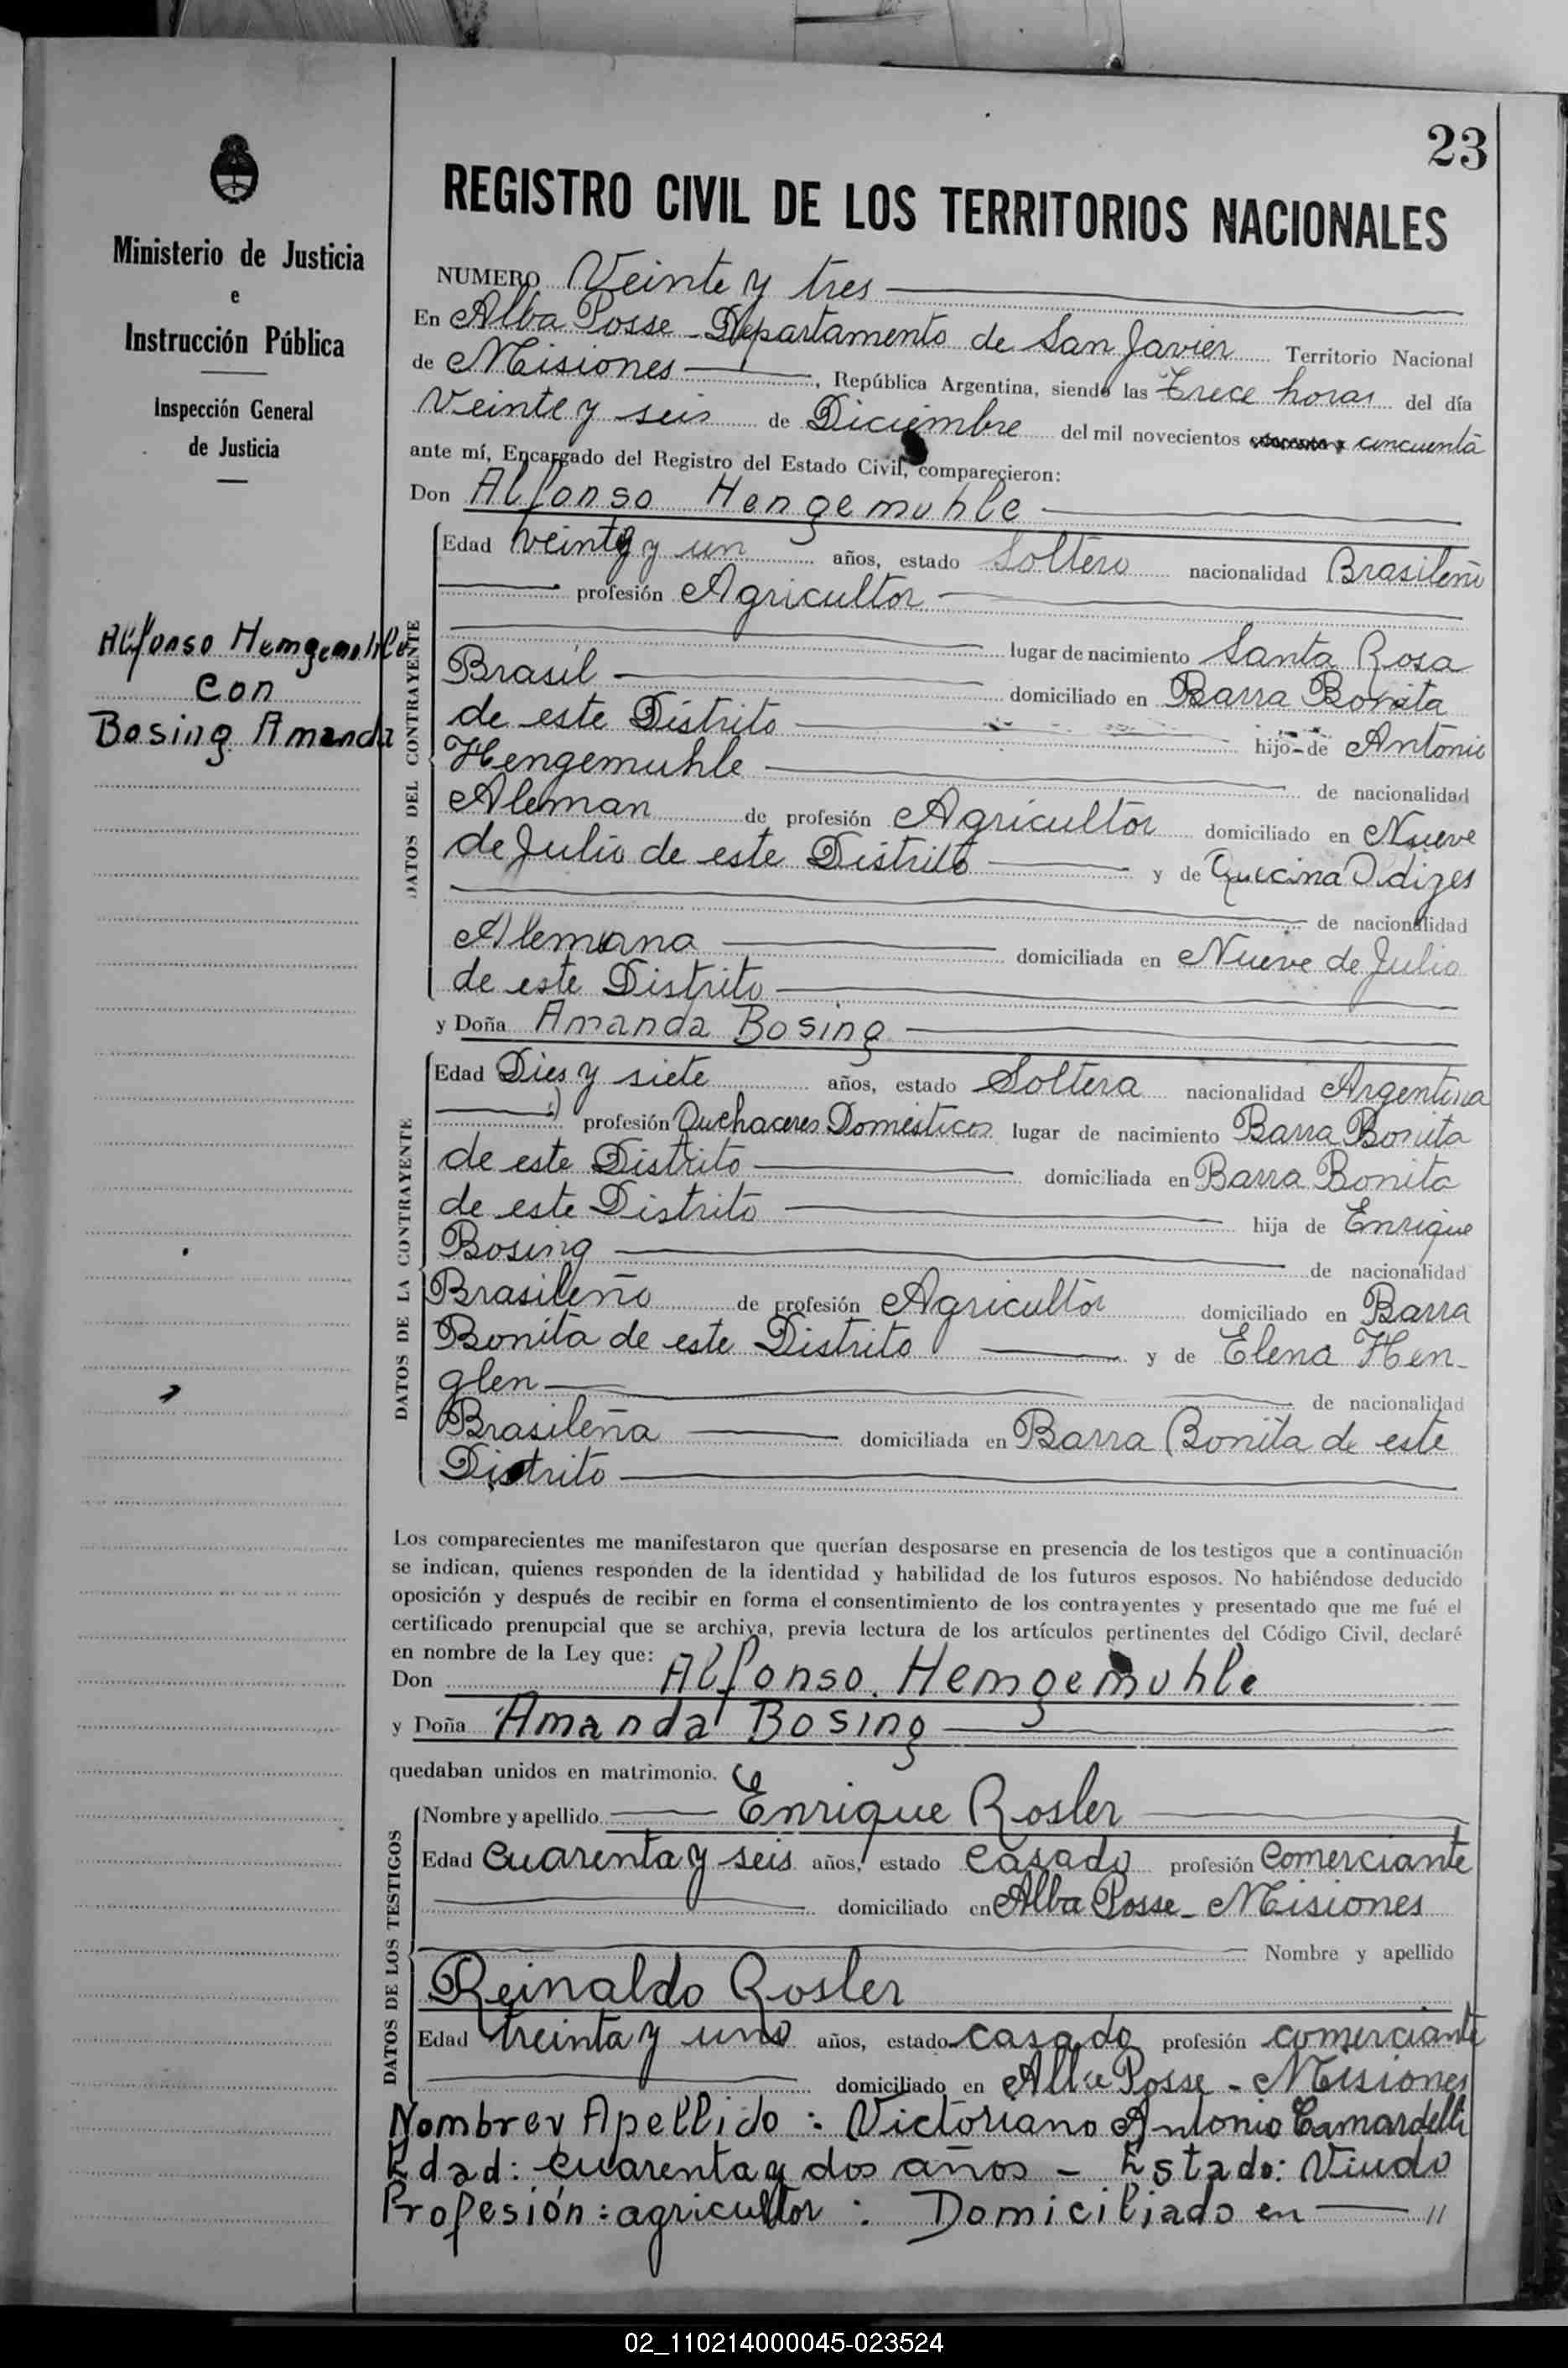 23
Ministerio de Justicia
e
Instrucción Pública
Inspección General
de Justicia
Alfonso Hemgemuhle
con
Bosing Amanda
REGISTRO CIVIL DE LOS TERRITORIOS NACIONALES
NUMERO Veinte y tres
En Alba Posse - Departamento de San Javier Territorio Nacional
de Misiones, República Argentina, siendo las Trece horas del día
Veinte y seis de Diciembre del mil novecientos cincuenta
ante mí, Encargado del Registro del Estado Civil, comparecieron:
Don Alfonso Hengemuhle
DATOS DEL CONTRAYENTE
Edad veinte y un años, estado Soltero nacionalidad Brasileño
profesión Agricultor
lugar de nacimiento Santa Rosa
Brasil domiciliado en Barra Bonita
de este Distrito hijo de Antonio
Hengemuhle de nacionalidad
Aleman de profesión Agricultor domiciliado en Nueve
de Julio de este Distrito y de
de nacionalidad
Alemana domiciliada en Nueve de Julio
de este Distrito
y Doña Amanda Bosing
DATOS DE LA CONTRAYENTE
Edad Dies y siete años, estado Soltera nacionalidad Argentina
profesión Quehaceres Domesticos lugar de nacimiento Barra Bonita
de este Distrito domiciliada en Barra Bonita
de este Distrito hija de Enrique
Bosing de nacionalidad
Brasileño de profesión Agricultor domiciliado en Barra
Bonita de este Distrito y de Elena Hen-
glen de nacionalidad
Brasileña domiciliada en Barra Bonita de este
Distrito
Los comparecientes me manifestaron que querían desposarse en presencia de los testigos que a continuación
se indican, quienes responden de la identidad y habilidad de los futuros esposos. No habiéndose deducido
oposición y después de recibir en forma el consentimiento de los contrayentes y presentado que me fué el
certificado prenupcial que se archiva, previa lectura de los artículos pertinentes del Código Civil, declaré
en nombre de la Ley que:
Don Alfonso Hemgemuhle
y Doña Amanda Bosing
quedaban unidos en matrimonio.
DATOS DE LOS TESTIGOS
Nombre y apellido Enrique Rosler
Edad cuarenta y seis años, estado casado profesión comerciante
domiciliado en Alba Posse - Misiones
Nombre y apellido
Reinaldo Rosler
Edad treinta y uno años, estado casado profesión comerciante
domiciliado en Alba Posse - Misiones
Nombre y Apellido : Victoriano Antonio Camardelli
Edad: cuarenta y dos años - Estado: Viudo
Profesión : agricultor : Domiciliado en — //
02_110214000045-023524